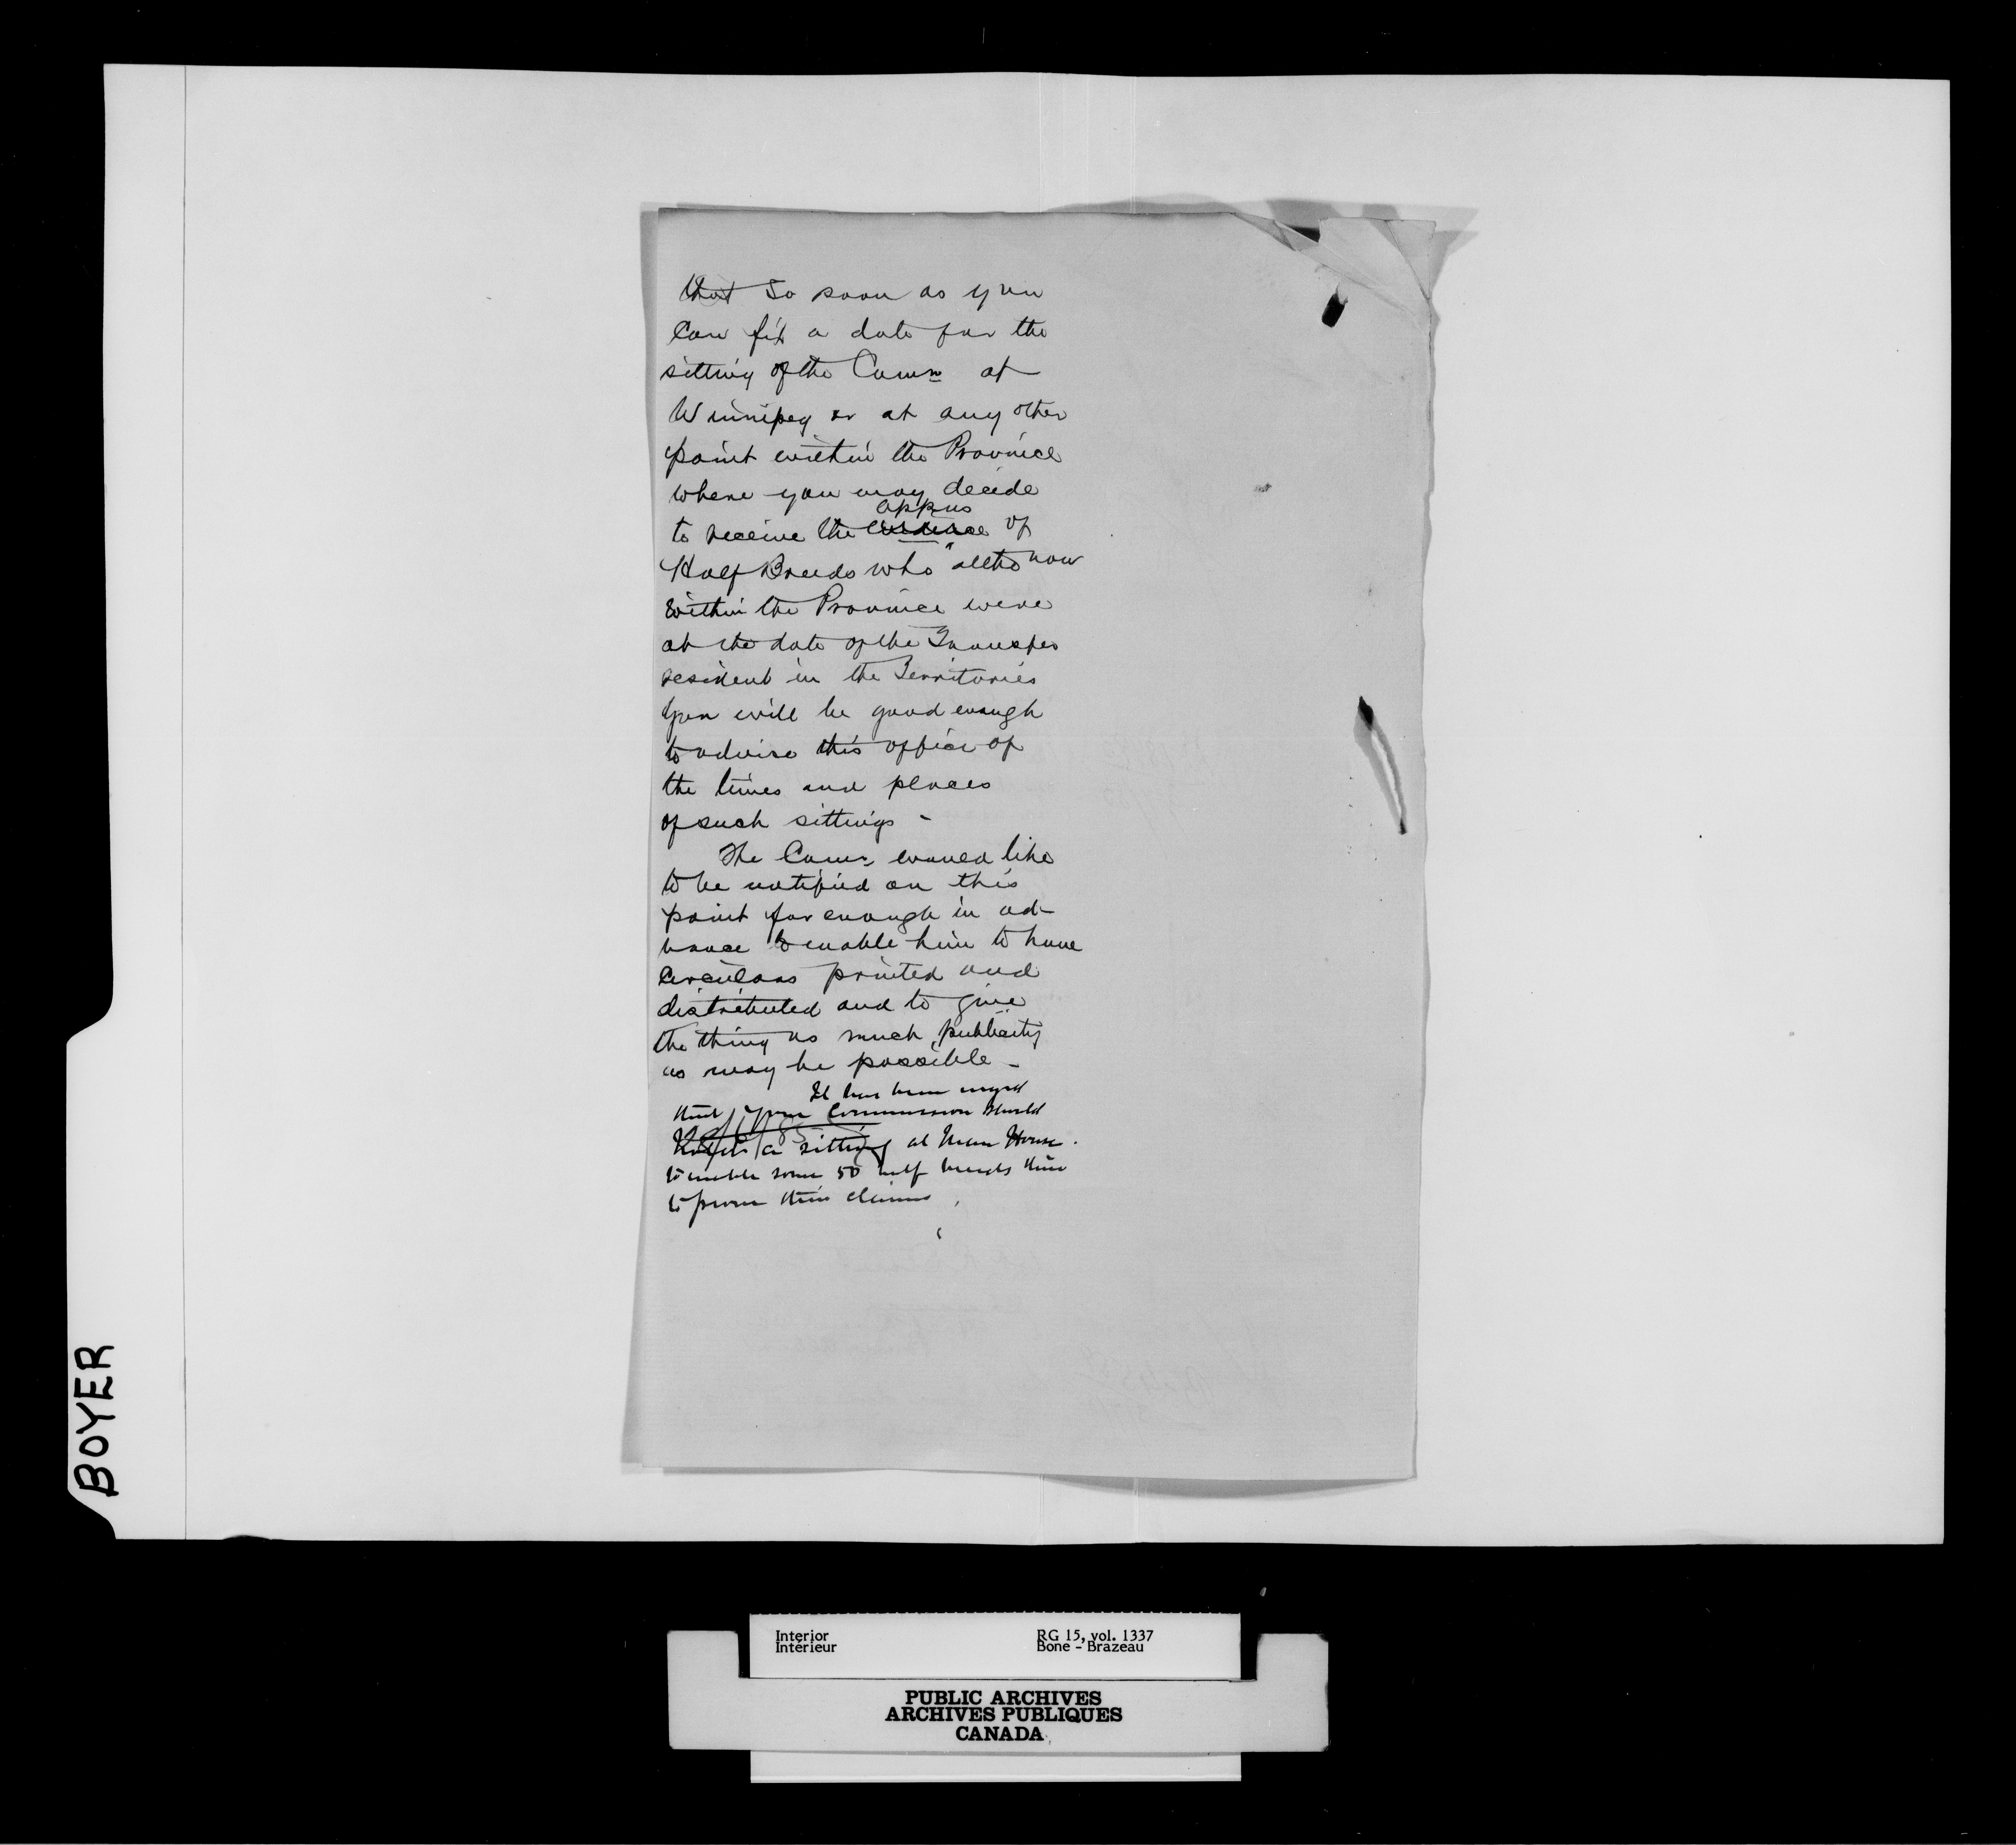 that So soon as you
Can fix a date for the
sitting of the Commn at
Winnipeg or at any other
point within the Province
where you may decide
appns
to receive the evidence of
Half Breeds who altho now
within the Province were
at the date of the Transfer
resident in the Territories
you will be good enough
to advise this office of
the times and places
of such sittings -
The Commr would like
to be notified on this
point far enough in ad-
vance to enable him to have
circulars printed and
distributed and to give
the thing as much publicity
as may be possible -
It has been urged
that your Commission should
a sitting at House.
to enable some 50 half breeds there
to prove their claims
BOYER
Interior
Intérieur
RG 15, vol. 1337
Bone - Brazeau
PUBLIC ARCHIVES
ARCHIVES PUBLIQUES
CANADA